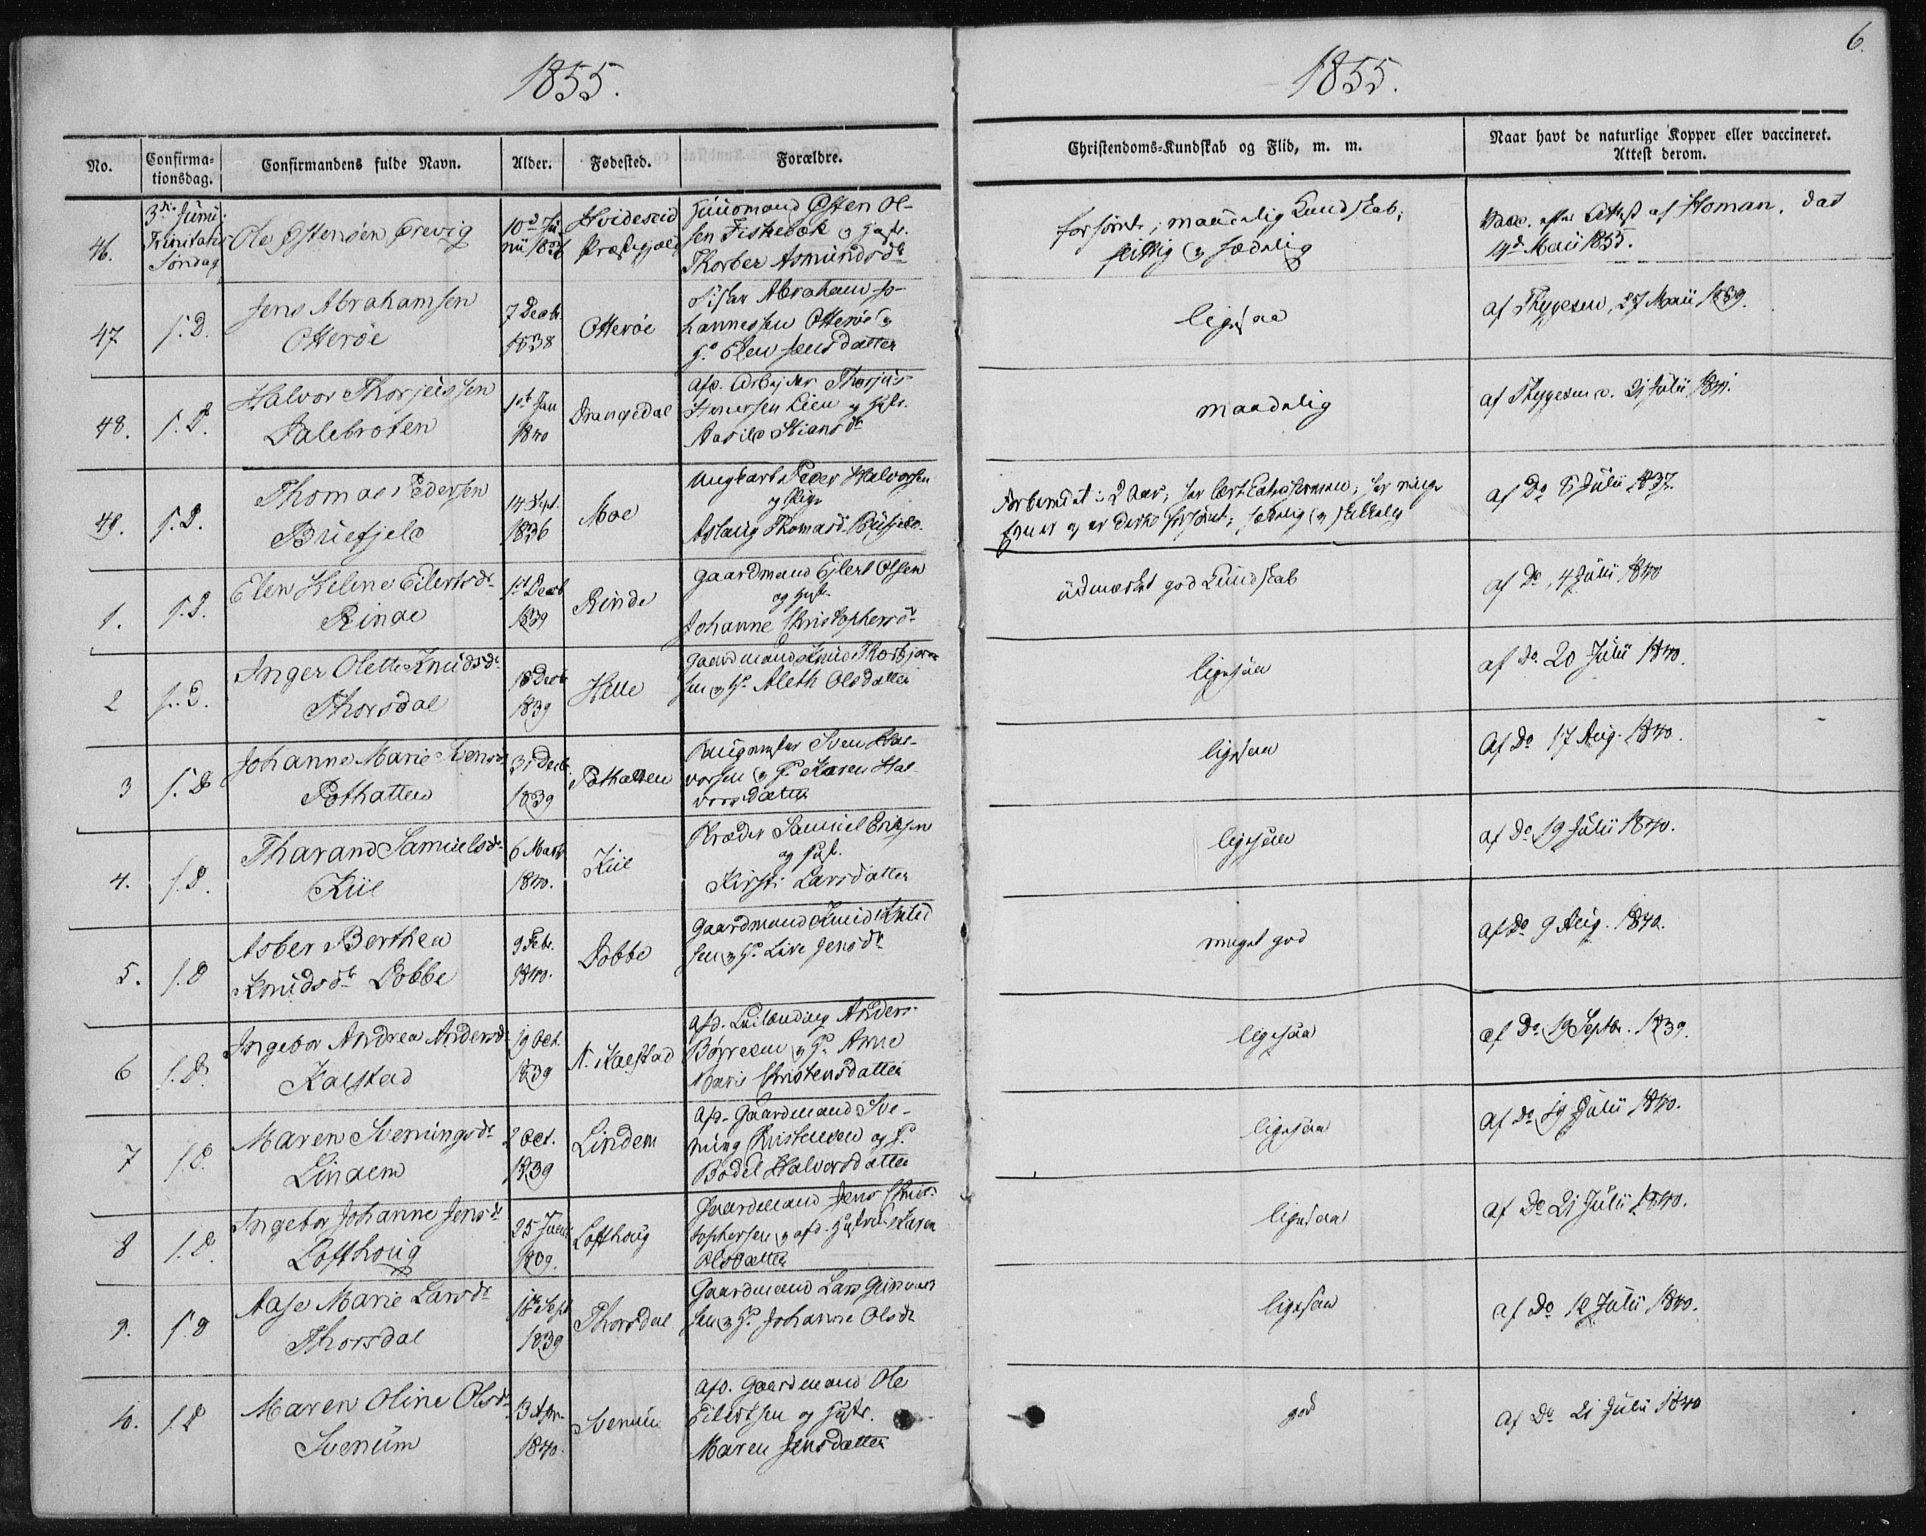 1855.
1855.
6.
No.
Confirma-
tionsdag.
Confirmandens fulde Navn.
Alder.
Fødested.
Forældre.
Christendoms-Kundskab og Flid, m. m.
Naar havt de naturlige Kopper eller vaccineret.
Attest derom.
46.
3die Juni
Trinitatis
Søndag
Ole Østensen Ørevig
Hvideseid
Præstegjæld
Huusmand Østen Ol-
sen Fiskebæk og Hust.
Thorber Asmundsdr
forsømt; maadelig Kundskab;
flittig og sædelig
Vacc. efter Attest af Homan. dat
14d Maii 1855.
47
S. D.
Jens Abrahamsen
Otterøe
7 Decbr.
1838
Otterøe
Fisker Abraham Jo-
hannessen Otterøe og
H. Elen Jensdatter
ligesaa
af Thygesen, 27 Maii 1839.
48.
S. D.
Halvor Thorjussen
Dalebroten
1st Jan
1840
Drangedal
afd. Arbejder Thorjus
Lien og Hust.
ds
maadelig
af Thygesen d. 21 Julii 1841.
49.
S. D.
Thomas Pedersen
Buefjeld
14 Sept.
1836
Moe
Ungkarl Peder Halvorsen
og Pige
Aslaug Thomasd. Buefjeld
Forberedet i 2 Aar; har lært Catechismen; har ringe
Evner og er derhos forsømt; sædelig og skikkelig
af Do 8 Julii 1837.
1.
S. D.
Elen Helene Eilertsdr
Rinde
1st Decb
1839
Rinde
Gaardmand Ejlert Olsen
og Hust.
Johanne Christophersdr
udmærket god Kundskab
af Do 14 Julii 1840
2
S. D.
Inger Olette Knudsdr
Thorsdal
18 Decb
1839
Helle
Gaardmand Knud Thorbjørn-
sen og H. Aleth Olsdatter
ligesaa
af Do. 20 Julii 1840.
3
S. D
Johanne Marie Svensd
Pothatten
31 Decb.
1839
Pothatten
Sven Hal-
vorsen og H. Karen Hal-
vorsdatter
ligesaa
Af Do 17 Aug. 1840.
4.
S. D.
Tharand Samuelsdr
Kiil
6 Marts
1840.
Kiil
Samuel Eriksen
og Hust.
Kirsti Larsdatter
ligesaa
af Do 19 Julii 1840.
5.
S. D
Asber Berthea
Knudsdr Dobbe
9 Febr.
1840.
Dobbe
Gaardmand Knud Knud
sen og H. Live Jensdr
meget god
af Do 9 Aug. 1840.
6
S. D.
Ingebor Andrea Andersd
Kalstad
19 Oct.
1839
N. Kalstad
afd. Anders
Børresen og H. Anne
Marie Christensdatter
ligesaa
af Do 19 Septbr. 1839.
7
S. D.
Maren Sveningsdr
Lindem
2 Oct.
1839
Lindem
Afd. Gaardmand Sve-
ning Christensen og H.
Bodel Halvorsdatter
ligesaa
af Do 19 Julii 1840.
8
S. D
Ingebor Johanne Jensdr
Lofthoug
1839.
Lofthoug
Gaardmand Jens Chris-
tophersen og afd. Hustrue Karen
Olsdatter
ligesaa
af Do 21 Julii 1840.
9.
S. D
Aase Marie Larsdr
Thorsdal
18de Sept
1839
Thorsdal
Gaardmand Lars Gunnar
sen og H. Johanne Olsdr
ligesaa
af Do 12 Julii 1840.
10.
S. D
Maren Oline Olsdr
Svenum
13 Apr.
1840.
Svenum
Afd. Gaardmand Ole
Eilertsen og Hust.
Maren Jensdatter
god
af Do 21 Julii 1840